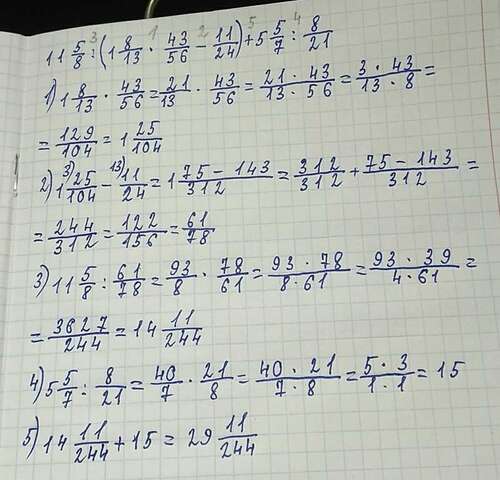 3 1 2 5 4
11 5/8 : (1 8/13 · 43/56 − 11/24) + 5 5/7 : 8/21
1) 1 8/13 · 43/56 = 21/13 · 43/56 = 21 · 43/13 · 56 = 3 · 43/13 · 8 =
= 129/104 = 1 25/104
2) 1 3) 25/104 − 13) 11/24 = 1 75 − 143/312 = 312/312 + 75 − 143/312 =
= 244/312 = 122/156 = 61/78
3) 11 5/8 : 61/78 = 93/8 · 78/61 = 93 · 78/8 · 61 = 93 · 39/4 · 61 =
= 3627/244 = 14 11/244
4) 5 5/7 : 8/21 = 40/7 · 21/8 = 40 · 21/7 · 8 = 5 · 3/1 · 1 = 15
5) 14 11/244 + 15 = 29 11/244